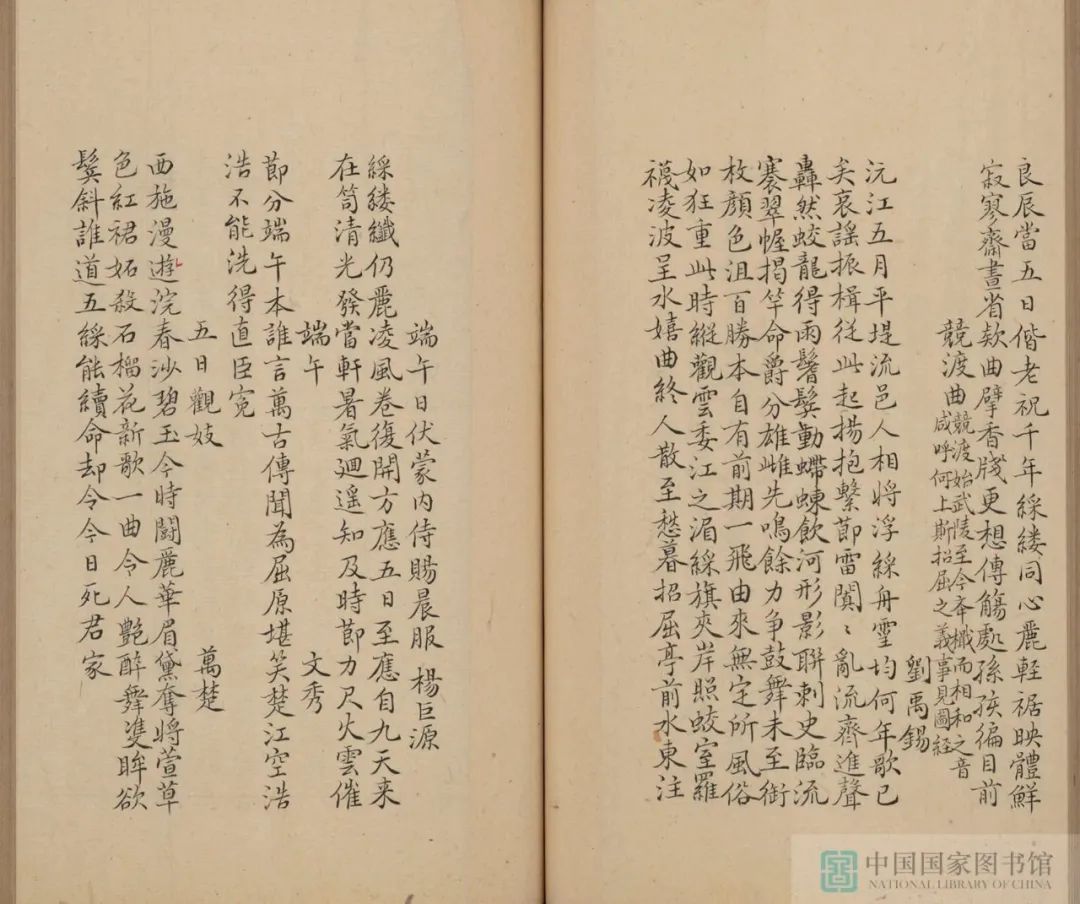 良辰當五日偕老祝千年綵縷同心麗輕裾映體鮮
寂寥齋畫省欵曲擘香牋更想傳觴處孫孩徧目前
競渡曲競渡始武陵至今本檝而相和之音
咸呼何上斯招屈之義事見圖経
劉禹錫
沅江五月平堤流邑人相將浮綵舟霊均何年歌已
矣哀謡振楫従此起揚抱繫節雷闐〻亂流齊進聲
轟然蛟龍得雨鬐鬓動螮蝀飲河形影聯刺史臨流
褰翠幄揭竿命爵分雄雌先鳴餘力争鼓舞未至銜
枚顔色沮百勝本自有前期一飛由來無定所風俗
如狂重此時縦觀雲委江之湄綵旗夾岸照蛟室羅
襪凌波呈水嬉曲終人散至愁暮招屈亭前水東注
端午日伏蒙内侍賜晨服 楊巨源
綵縷纖仍麗凌風卷復開方應五日至應自九天来
在笥清光發當軒暑氣廻遥知及時節力尺火雲催
端午 文秀
節分端午本誰言萬古傳聞為屈原堪笑楚江空浩
浩不能洗得直臣寃
五日觀妓 萬楚
西施漫遊浣春沙碧玉今時闘麗華眉黛奪將萱草
色紅裙妬殺石榴花新歌一曲令人艷醉舞雙眸欲
鬓斜誰道五綵能續命却令今日死君家
中国国家图书馆
NATIONAL LIBRARY OF CHINA